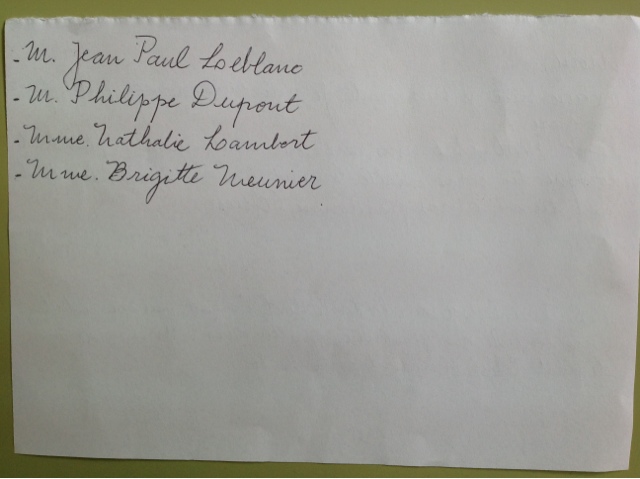 - M. Jean Paul Leblanc
- M. Philippe Dupont
- Mme. Nathalie Lambert
- Mme. Brigitte Meunier